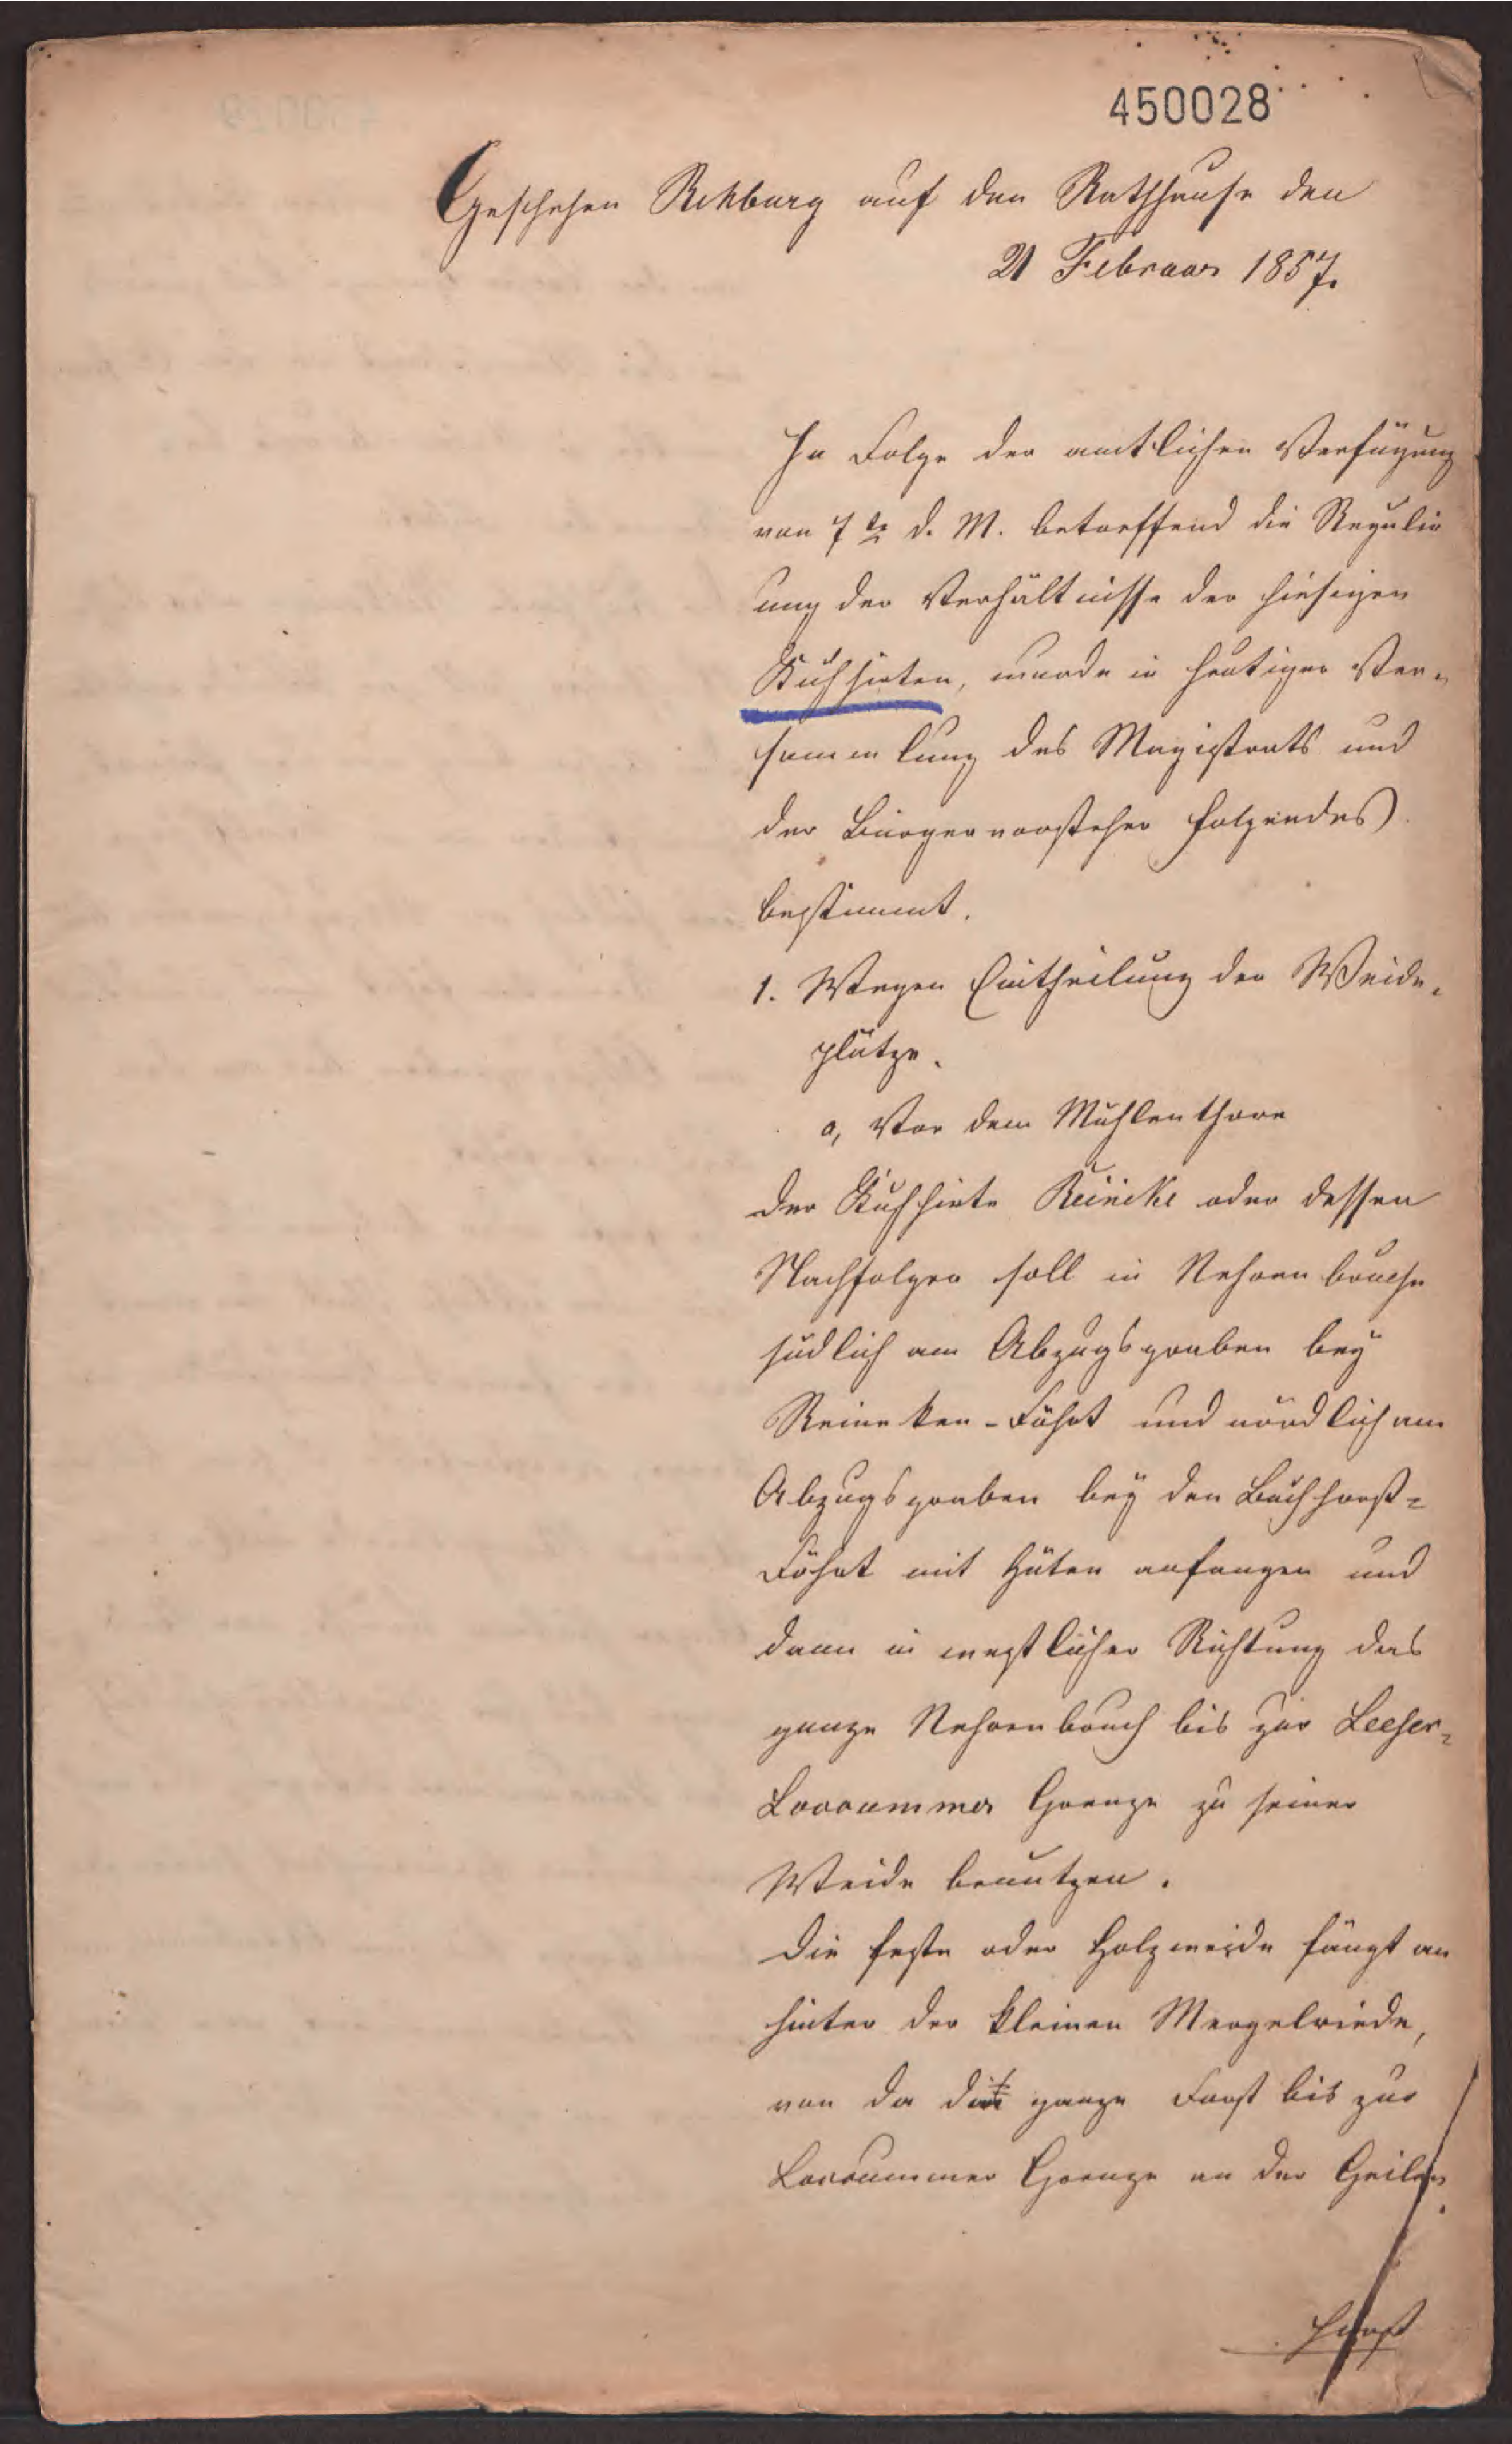 450028
Geschehen Rehburg auf den Rathhause den
21 Februar 1857.
In Folge der amtlichen Verfügung
von 7ten d. M. betreffend die Regulir
ung der Verhältnisse der hiesigen
Kuhhirten, wurde in heutiger Ver-
sammlung des Magistrats und
der Bürgervorsteher folgendes
bestimmt.
1. Wegen Eintheilung der Weide-
plätze.
a, Vor dem Mühlenthore
der Kuhhirte Reineke oder dessen
Nachfolger soll in Nehrenbruche
südlich am Abzugsgraben bey
Reineken-Föhrt und nördlich am
Abzugsgraben bey den Buchhorst-
Föhrt mit Hüten anfangen und
dann in westlicher Richtung das
ganze Nehrenbruch bis zur Leeser-
Loccummer Grenze zu seiner
Weide benutzen.
Die feste oder Holzweide fängt an
hinter der kleinen Mergelriede,
von da die ganze Forst bis zur
Loccummer Grenze an der Geilen
horst